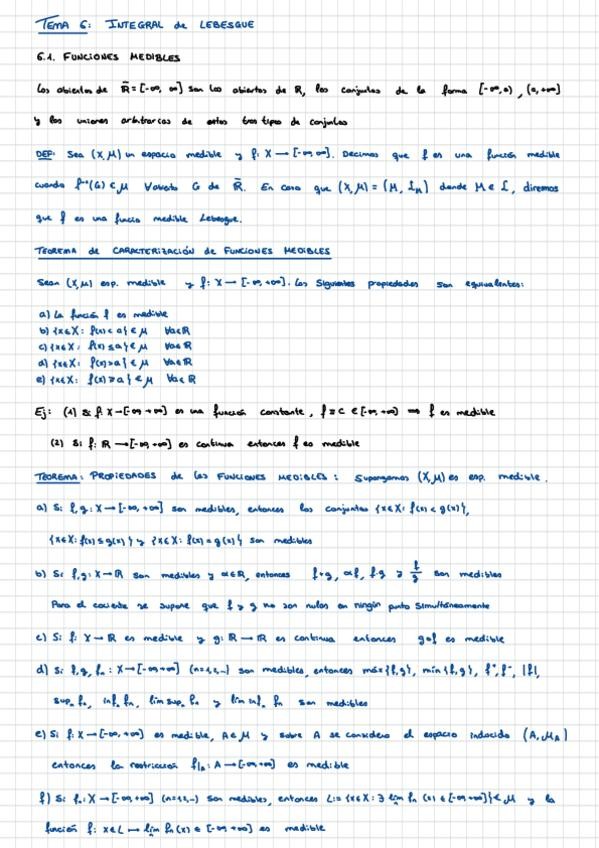 TEMA 6: INTEGRAL de LEBESGUE
6.1. FUNCIONES MEDIBLES
Los abiertos de R̄ = [-∞, ∞] son los abiertos de R, los conjuntos de la forma [-∞, a), (a, +∞]
y las uniones arbitrarias de estos tres tipos de conjuntos
DEF: Sea (X, M) un espacio medible y f: X → [-∞, ∞]. Decimos que f es una función medible
cuando f⁻¹(G) ∈ M ∀abierto G de R̄. En caso que (X, M) = (M, L_M) donde M ∈ L, diremos
que f es una funcio medible Lebesgue.
TEOREMA de CARACTERIZACIÓN de FUNCIONES MEDIBLES
Sean (X, M) esp. medible y f: X → [-∞, +∞]. Las siguientes propiedades son equivalentes:
a) La función f es medible
b) {x∈X: f(x) < a} ∈ M ∀a∈R
c) {x∈X: f(x) ≤ a} ∈ M ∀a∈R
d) {x∈X: f(x) > a} ∈ M ∀a∈R
e) {x∈X: f(x) ≥ a} ∈ M ∀a∈R
Ej: (1) Si f: X → [-∞, +∞] es una función constante, f ≡ c ∈ [-∞, +∞] ⇒ f es medible
(2) Si f: R → [-∞, +∞] es continua entonces f es medible
TEOREMA: PROPIEDADES de las FUNCIONES MEDIBLES: Supongamos (X, M) es esp. medible.
a) Si f, g: X → [-∞, +∞] son medibles, entonces los conjuntos {x∈X: f(x) < g(x)},
{x∈X: f(x) ≤ g(x)} y {x∈X: f(x) = g(x)} son medibles
b) Si f, g: X → R son medibles y α∈R, entonces f+g, αf, f·g y f/g son medibles
Para el cociente se supone que f y g no son nulas en ningún punto simultáneamente
c) Si f: X → R es medible y g: R → R es continua entonces g∘f es medible
d) Si f, g, fₙ: X → [-∞, +∞] (n=1,2,...) son medibles, entonces máx{f, g}, mín{f, g}, f⁺, f⁻, |f|,
supₙ fₙ, infₙ fₙ, lim supₙ fₙ y lim infₙ fₙ son medibles
e) Si f: X → [-∞, +∞] es medible, A∈M y sobre A se considera el espacio inducido (A, M_A)
entonces la restricción f|_A: A → [-∞, +∞] es medible
f) Si fₙ: X → [-∞, +∞] (n=1,2,...) son medibles, entonces L := {x∈X: ∃ lim fₙ(x) ∈ [-∞, +∞]} ∈ M y la
función f: x∈L ↦ lim fₙ(x) ∈ [-∞, +∞] es medible